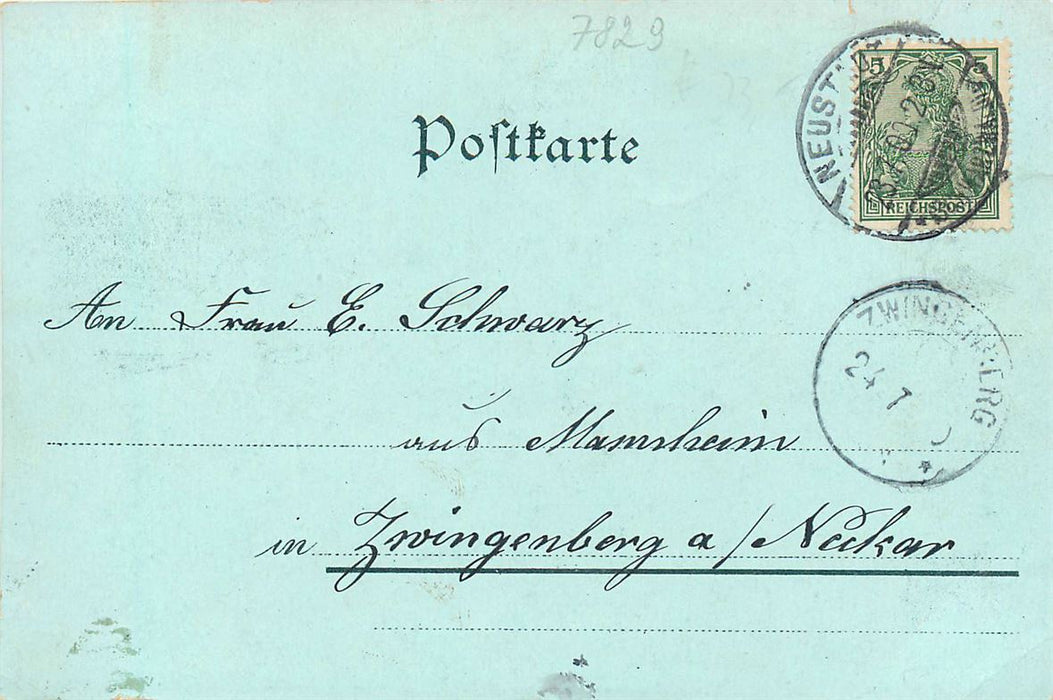 7829
Postkarte
5 5
REICHSPOST
NEUSTADT
ZWINGENBERG
24 7
An Frau E. Schwarz
aus Mannheim
in Zwingenberg a/Neckar